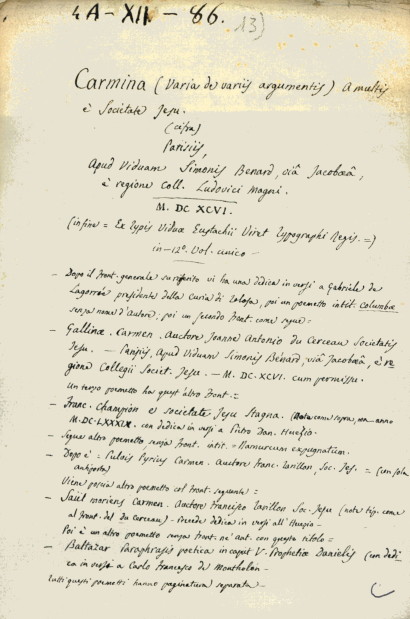 4A-XII-86.
13)
Carmina (Varia de variis argumentis) A multis
è Societate Jesu.
(cifra)
Parisiis,
Apud Viduam Simonis Benard, viâ Jacobæâ,
è regione Coll. Ludovici Magni.
M.DC XCVI.
(in fine = Ex Typis Viduæ Eustachii Viret Typographi Regis. =)
in-12º. Vol. unico -
- Dopo il front. generale su riferito vi ha una dedica in versi a Gabriele de
presidente della Curia di Tolosa, poi un poemetto intit. Columbæ
senza nome d'Autore; poi un secondo front. come segue:
- Gallinæ. Carmen. Auctore Joanne Antonio du Cerceau Societatis
Jesu. - Parisiis, Apud Viduam Simonis Bénard, viâ Jacobæâ, è re-
gione Collegii Societ. Jesu. - M.DC.XCVI. cum permissu.
Un terzo poemetto ha quest'altro front. =
- Franc. Champion è Societate Jesu Stagna. (Note come sopra, ma anno
M.DC.LXXXIX. con dedica in versi a Pietro Dan. Huezio.
- Segue altro poemetto senza front. intit. = Namurcum expugnatum.
- Dopo è = Pulvis Pyrius Carmen. Autore Franc. Tarillon, Soc. Jes. = (un sola
antiporta)
Viene poscia altro poemetto col front. seguente =
- Saül moriens Carmen. Autore Francisco Tarillon Soc. Jesu (note tip. come
al front. del du Cerceau) - Precede dedica in versi all'Huezio -
Poi è un altro poemetto senza front. nè aut. con questo titolo =
- Baltazar Paraphrasis poetica in caput V. Prophetiæ Danielis (con dedi-
ca in versi a Carlo Francesco de Montholon -
tutti questi poemetti hanno paginatura separata -